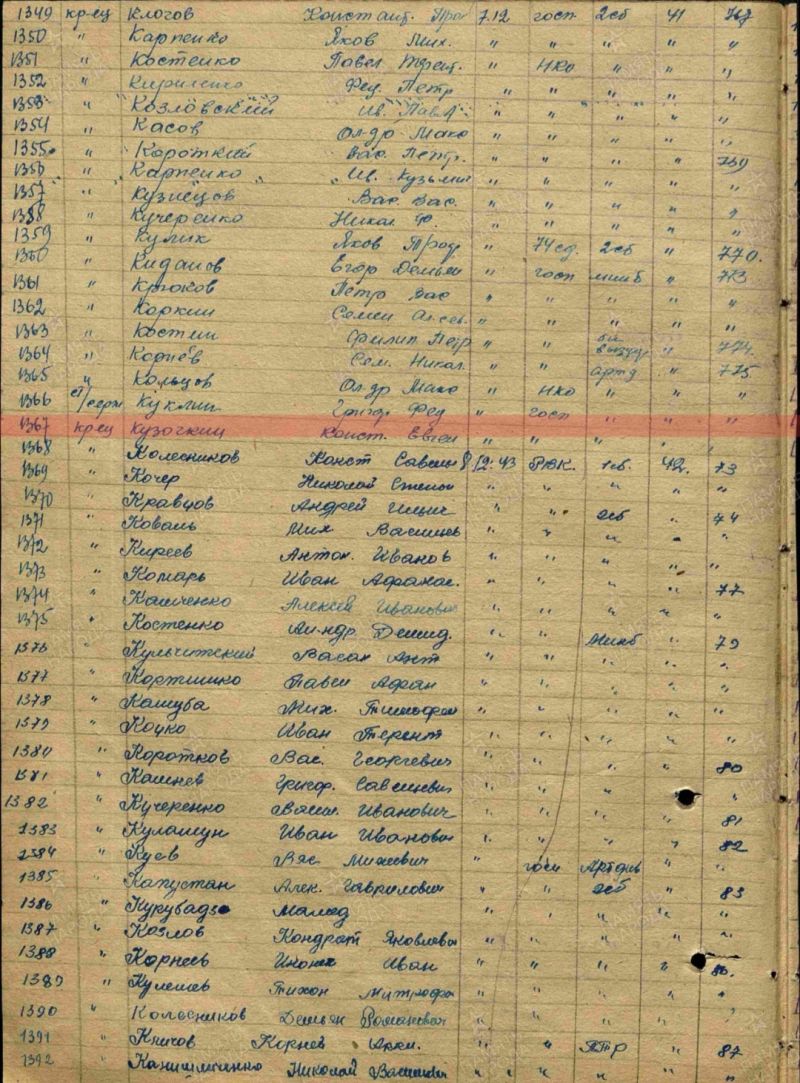 1349 кр-ец Клогов Констант. Про 7.12 госп 2сб 41 767
1350 " Карпенко Яков Мих. " " " " "
1351 " Костенко Павел " НКО " " "
1352 " Кириленко Фед. Петр " " " " "
1353 " Козловский Ив. Павл " " " " "
1354 " Касов Ол-др Мако " " " " "
1355 " Короткий Вас. Петр. " " " " 769
1356 " Карпенко Ив. Кузьми " " " " "
1357 " Кузнецов Вас. Вас. " " " " "
1358 " Кучеренко Никол. Ф. " " " " "
1359 " Кулик Яков Прод. " 74сд. 2сб " 770.
1360 " Киданов Егор Демья " госп минб " 773
1361 " Крюков Петр Вас " " " " "
1362 " Коркин Семен Алсев. " " " " "
1363 " Костин Филип Петр " " "
1364 " Корнев Сем. Никол. " " " 774.
1365 " Кольцов Ол-др Мако " НКО артд " 775.
1366 ст/серж Куклин Григ. Фед " госп " " "
1367 кр-ец Кузочкин Конст. Евген " " " " "
1368 " Колесников Конст Савель 8.12.43 РВК. 1сб. 42. 73
1369 " Кочер Николай Степан " " " " "
1370 " Кравцов Андрей Ильич " " 2сб " 74
1371 " Коваль Мих. Василев " " " " "
1372 " Киреев Антон. Иванов " " " " "
1373 " Комарь Иван Афанас. " " " " 77
1374 " Кашченко Алексей Иванович " " " " "
1375 " Костенко Ан-ндр Демид. " " Минб " 79
1376 " Кульчитский Васил Ант " " " " "
1377 " Кортишко Павел Афан " " " " "
1378 " Кашуба Мих. Тимофеев " " " " "
1379 " Коцко Иван Терент " " " " "
1380 " Коротков Вас. Георгевич " " " " 80
1381 " Кашнев Григор. Савельевич " " " " "
1382 " Кучеренко Васил. Иванович " " " " 81
1383 " Кулашун Иван Иванович " " " " 82
1384 " Куев Вас Михеевич " госп Артдив " "
1385 " Капустан Алек. Гаврилович " " 2сб " 83
1386 " Курубадзе Мамед " " " " "
1387 " Козлов Кондрат Яковлевич " " " " "
1388 " Корнеев Иван " " " " 86.
1389 " Кулешев Тихон Митрофа " " " " "
1390 " Колесников Демьян Романович " " " " "
1391 " Кничов Корнев " " ПТР " 87
1392 " Николай Васильевич " " " " "